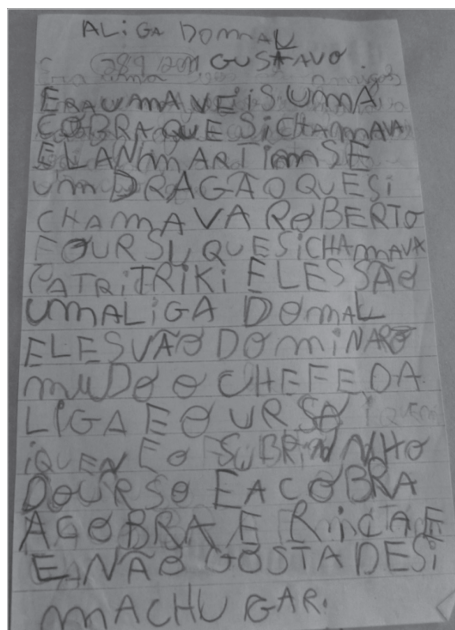 ALIGA DOMAL
GUSTAVO.
ERAUMAVEIS UMA
COBRA QUE SICHAMAVA
ELANMARTIMSE
UM DRAGÃO QUESI
CHAMAVA ROBERTO
EOURSU QUESICHAMAVA
PATRITRIKI ELES SÃO
UMALIGA DOMAL
ELES VÃO DOMINARO
MUDO O CHEFE DA
LIGA E O URSO
IQUEN E O SUBRINNHO
DOURSO EACOBRA
ACOBRA E RINCTAE
ENÃO GOSTA DESI
MACHUGAR.